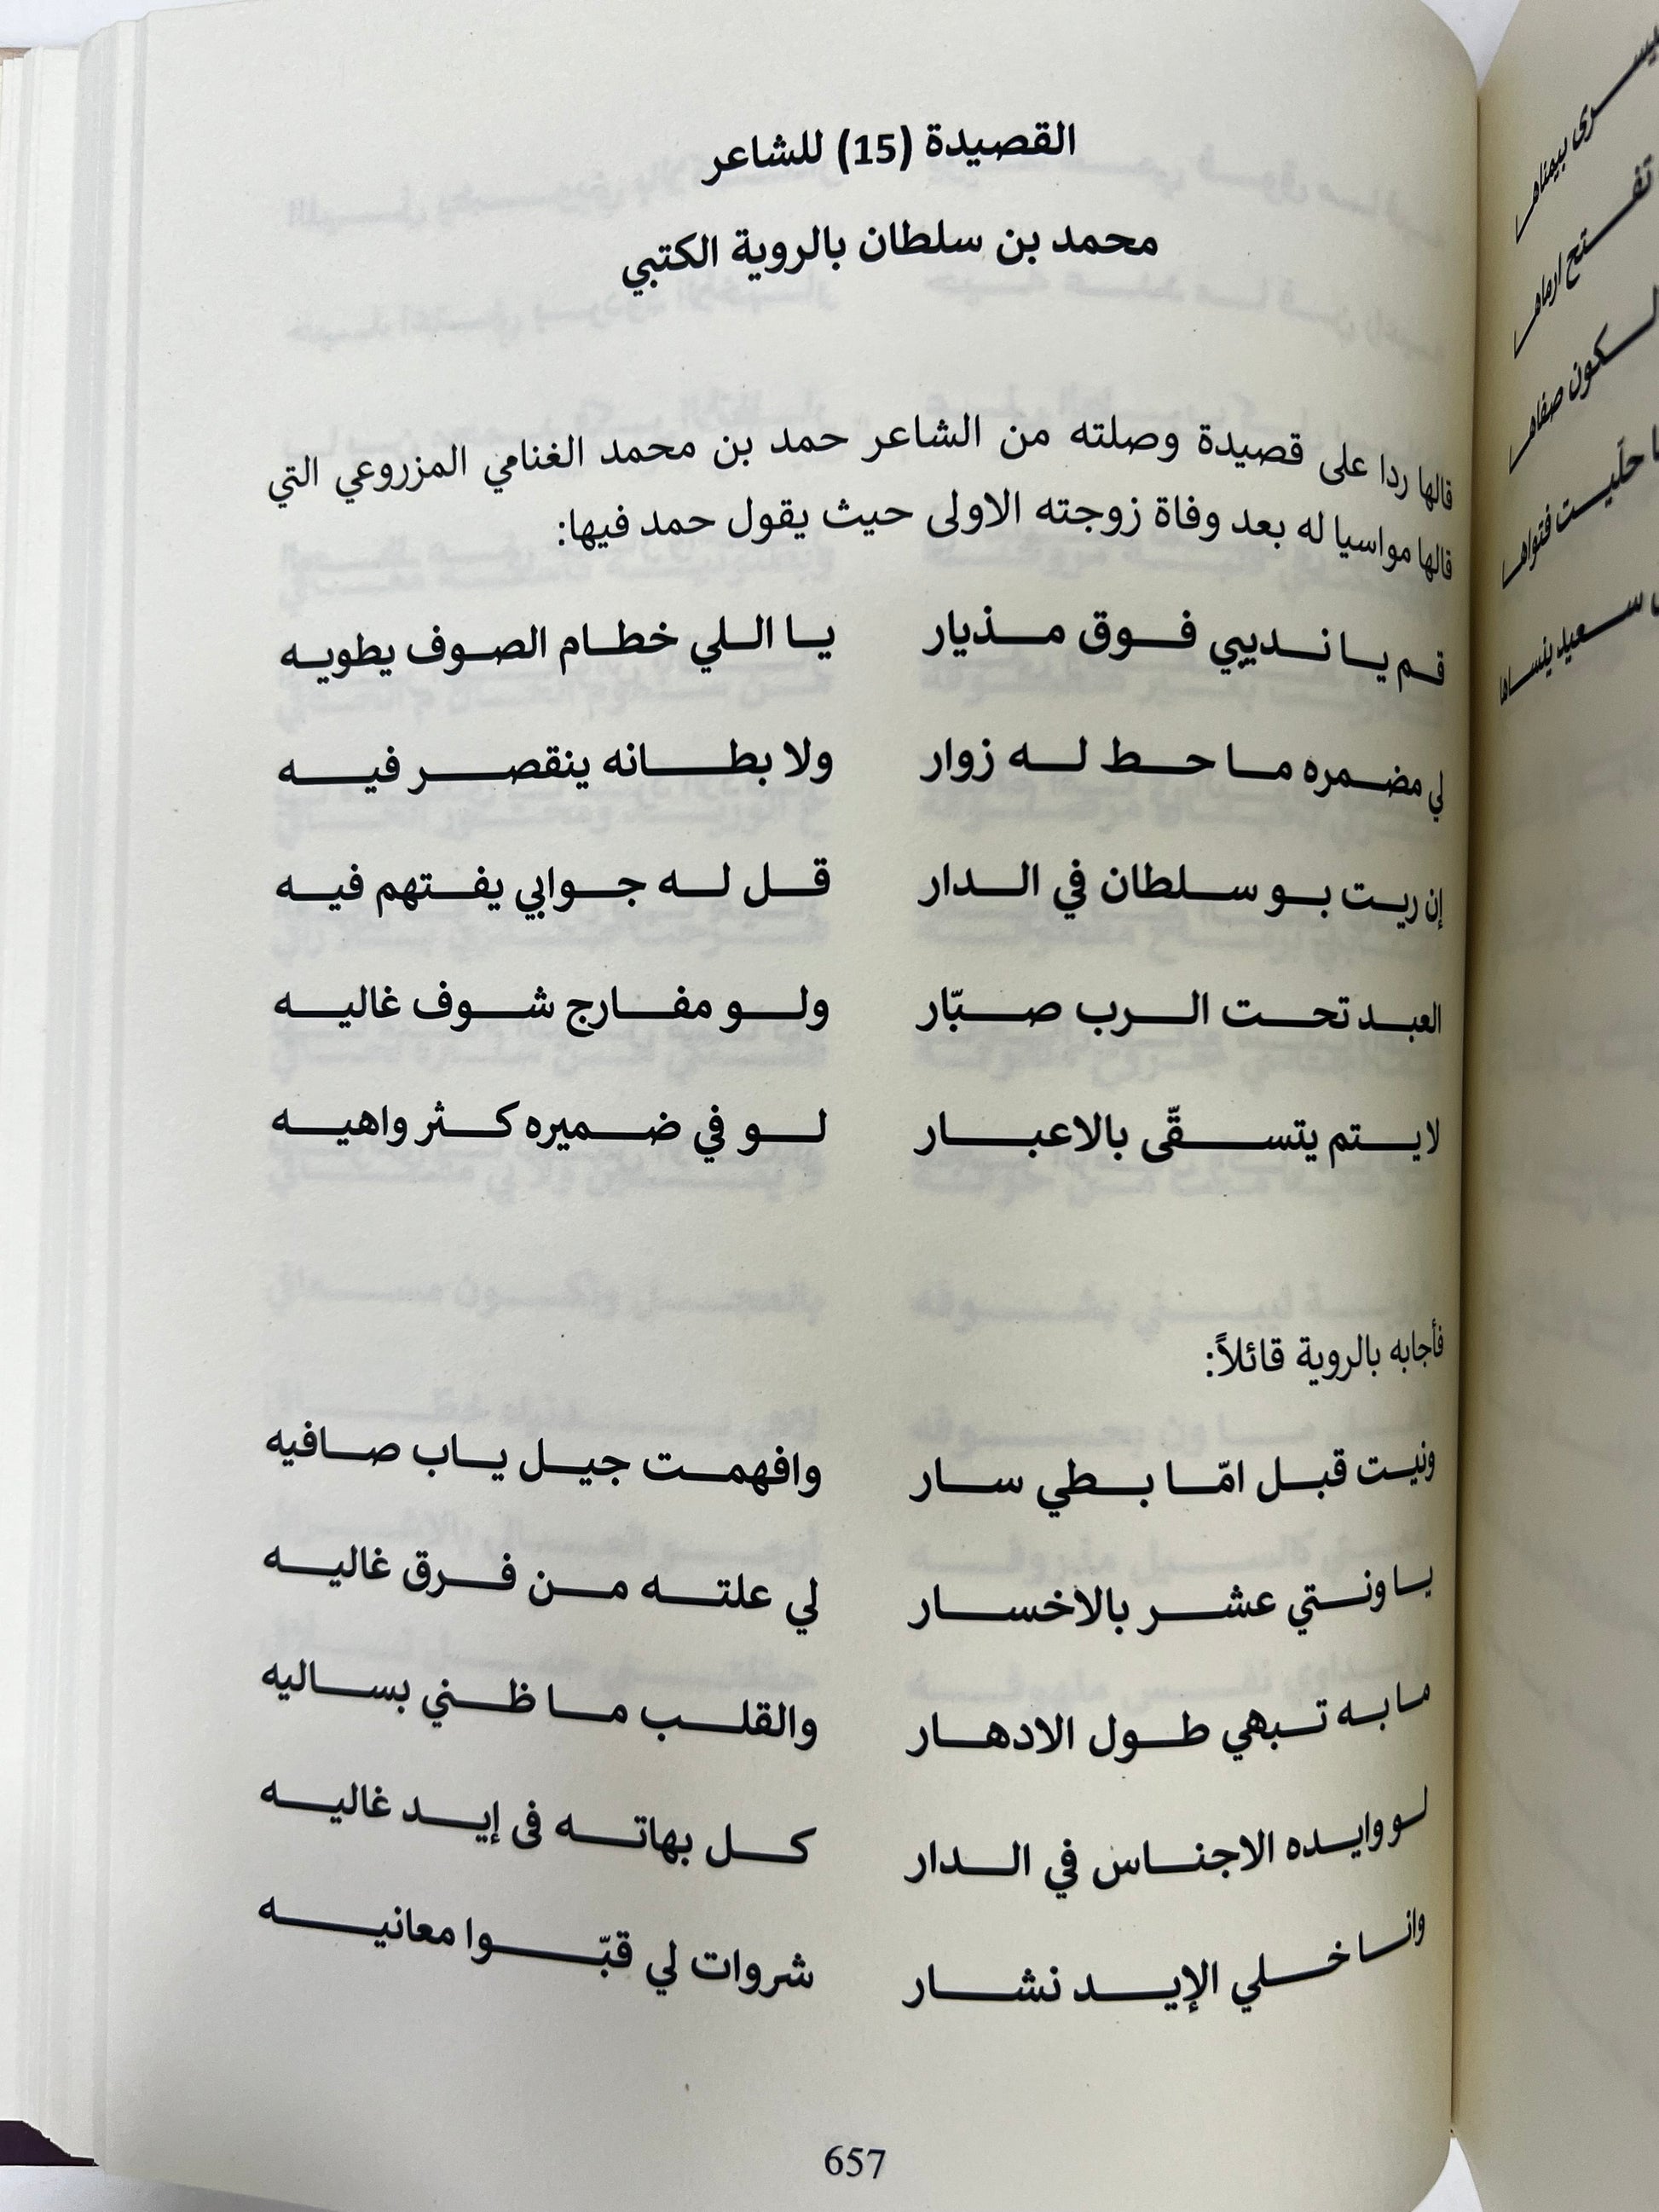 القصيدة (15) للشاعر
محمد بن سلطان بالروية الكتبي
قالها ردا على قصيدة وصلته من الشاعر حمد بن محمد الغنامي المزروعي التي
قالها مواسيا له بعد وفاة زوجته الاولى حيث يقول حمد فيها:
قم يا نديبي فوق مذيار يا اللي خطام الصوف يطويه
لي مضمره ما حط له زوار ولا بطانه ينقصر فيه
إن ريت بو سلطان في الدار قل له جوابي يفتهم فيه
العبد تحت الرب صبّار ولو مفارج شوف غاليه
لا يتم يتسقّى بالاعبار لو في ضميره كثر واهيه
فأجابه بالروية قائلاً:
ونيت قبل امّا بطي سار وافهمت جيل ياب صافيه
يا ونتي عشر بالاخسار لي علته من فرق غاليه
ما به تبهي طول الادهار والقلب ما ظني بساليه
لو وايده الاجناس في الدار كل بهاته فى إيد غاليه
وانا خلي الإيد نشار شروات لي قبّوا معانيه
657
يسرى بيمناها
تفتح ارماها
لكون صفاها
حلّيت فتواها
سعيد ينساها